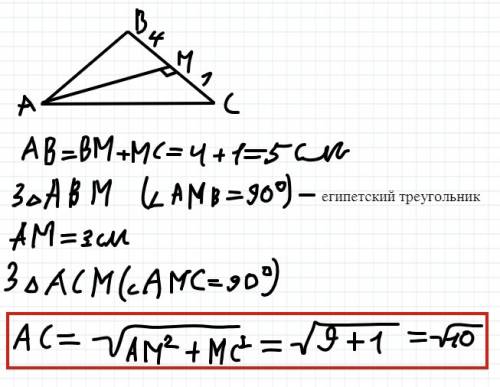 B
4
M
1
A
C
AB=BM+MC=4+1=5см
З△ABM (∠AMB=90°) – египетский треугольник
AM=3см
З△ACM(∠AMC=90°)
AC=√AM²+MC²=√9+1=√10